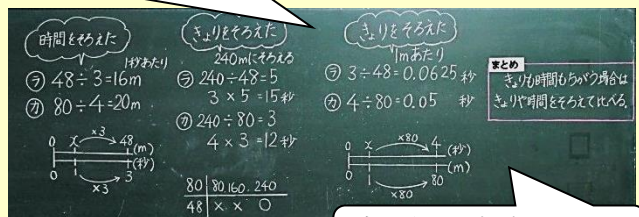 時間をそろえた
1秒あたり
㋶ 48÷3=16m
㋕ 80÷4=20m
×3
0 x 48 (m)
0 1 3 (秒)
×3
きょりをそろえた
240mにそろえる
㋶ 240÷48=5
3×5=15秒
㋕ 240÷80=3
4×3=12秒
80 80 160 240
48 × × ○
きょりをそろえた
1mあたり
㋶ 3÷48=0.0625秒
㋕ 4÷80=0.05 秒
×80
0 x 4 (秒)
0 1 80 (m)
×80
まとめ
きょりも時間もちがう場合は
きょりや時間をそろえて比べる。